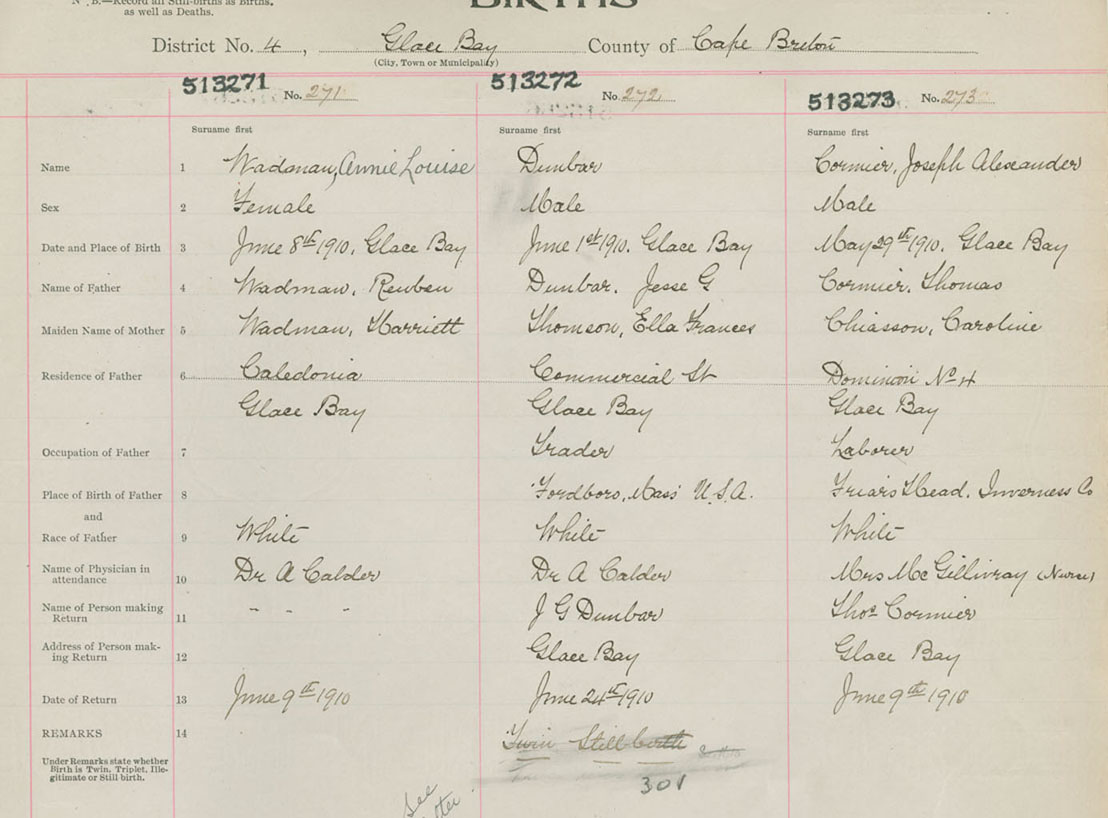 N. B.—Record all Still-births as Births,
as well as Deaths.
BIRTHS
District No. 4, Glace Bay County of Cape Breton
(City, Town or Municipality)
513271 No. 271 513272 No. 272 513273 No. 273
Surname first Surname first Surname first
Name 1 Wadman, Annie Louise Dunbar Cormier, Joseph Alexander
Sex 2 Female Male Male
Date and Place of Birth 3 June 8th 1910. Glace Bay June 1st 1910. Glace Bay May 29th 1910. Glace Bay
Name of Father 4 Wadman, Reuben Dunbar. Jesse G Cormier. Thomas
Maiden Name of Mother 5 Wadman, Harriett Thomson, Ella Frances Chiasson, Caroline
Residence of Father 6 Caledonia Commercial St Dominion No 4
Glace Bay Glace Bay Glace Bay
Occupation of Father 7 Trader Laborer
Place of Birth of Father 8 Fordboro, Mass U.S.A. Friars Head. Inverness Co
and
Race of Father 9 White White White
Name of Physician in
attendance 10 Dr A Calder Dr A Calder Mrs McGillivray (Nurse)
Name of Person making
Return 11 " " " J G Dunbar Thos Cormier
Address of Person mak-
ing Return 12 Glace Bay Glace Bay
Date of Return 13 June 9th 1910 June 24th 1910 June 9th 1910
REMARKS 14 Twin Still birth
Under Remarks state whether
Birth is Twin, Triplet, Ille-
gitimate or Still birth.
301
See